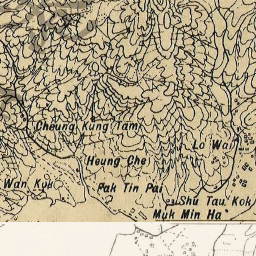 Cheung Kung Tam
Lo Wai
Heung Che
Wan Kuk
Pak Tin Pai
Shu Tau Kok
Muk Min Ha